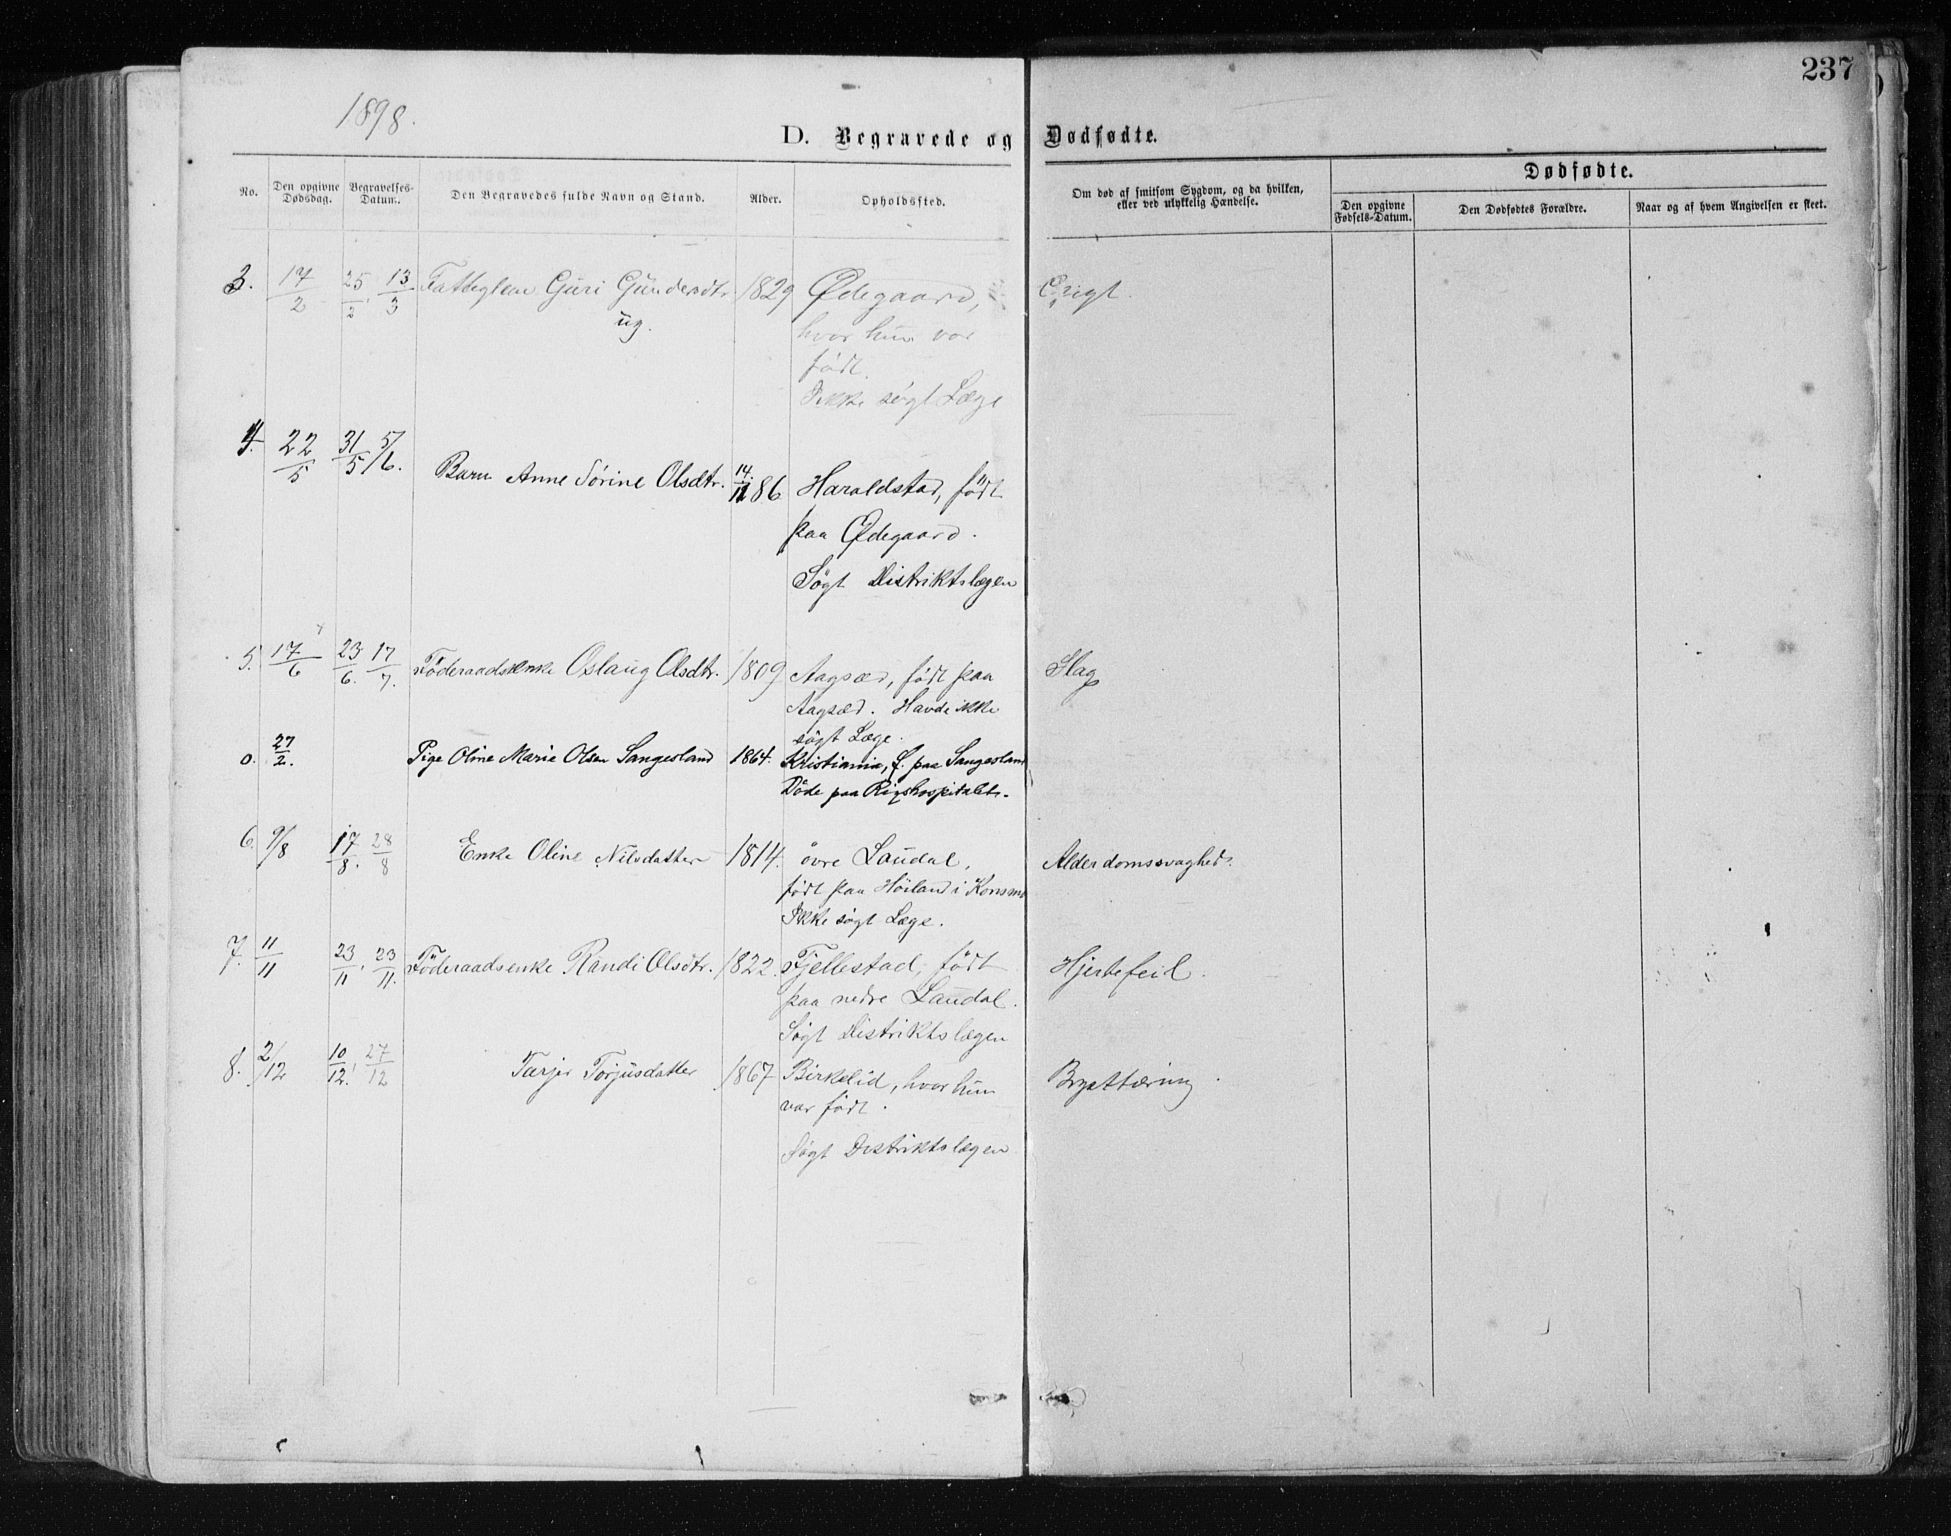 237
1898.
D. Begravede og Dødfødte.
No.
Den opgivne Dødsdag.
Begravelses-Datum.
Den Begravedes fulde Navn og Stand.
Alder.
Opholdssted.
Om død af smitsom Sygdom, og da hvilken, eller ved ulykkelig Hændelse.
Dødfødte.
Den opgivne Fødsels-Datum.
Den Dødfødtes Forældre.
Naar og af hvem Angivelsen er skeet.
3. 17/2 25/2. 13/3 Fattiglem Guri Gundersdtr. 1829 Ødegaard,
ug. hvor hun var
født.
Ikke søgt Læge
4. 22/5 31/5 5/6. Barn Anne Sørine Olsdtr. 14/11 86 Haraldstad, født
paa Ødegaard.
Søgt Distriktslægen
5. 17/6 23/6. 17/7. Føderaadsenke Oslaug Olsdtr. 1809 Aagsæd, født paa Slag
Aagsæd. Havde ikke
søgt Læge.
0. 27/2. Pige Oline Marie Olsen Sangesland 1864. Kristiania, f. paa Sangesland
Døde paa Rigshospitalet.
6. 9/8 17/8. 28/8 Enke Oline Nilsdatter 1814. øvre Laudal, Alderdomssvaghed.
født paa Høiland i Konsmo
Ikke søgt Læge.
7. 11/11 23/11. 23/11. Føderaadsenke Randi Olsdtr. 1822. Fjellestad, født Hjertefeil.
paa nedre Laudal.
Søgt Distriktslægen
8. 2/12 10/12. 27/12 Tarjer Torjusdatter 1867 Birkelid, hvor hun Brysttæring
var født.
Søgt Distriktslægen